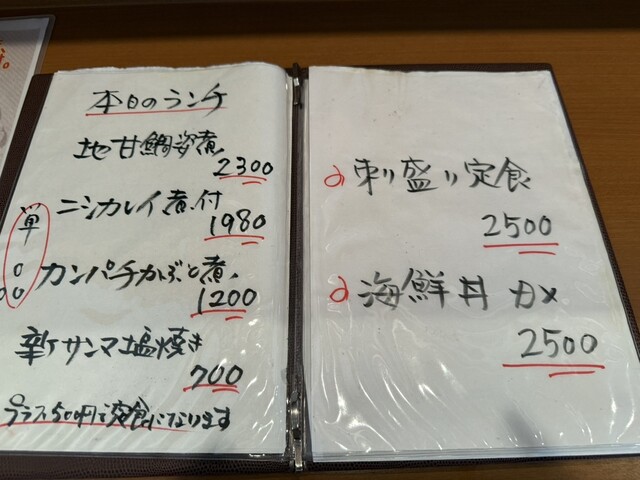 本日のランチ
地甘鯛姿煮
2300
ニシカレイ煮付
1980
単
カンパチかぶと煮
1200
新サンマ塩焼き
700
プラス500円で定食になります
刺り盛り定食
2500
海鮮丼
2500